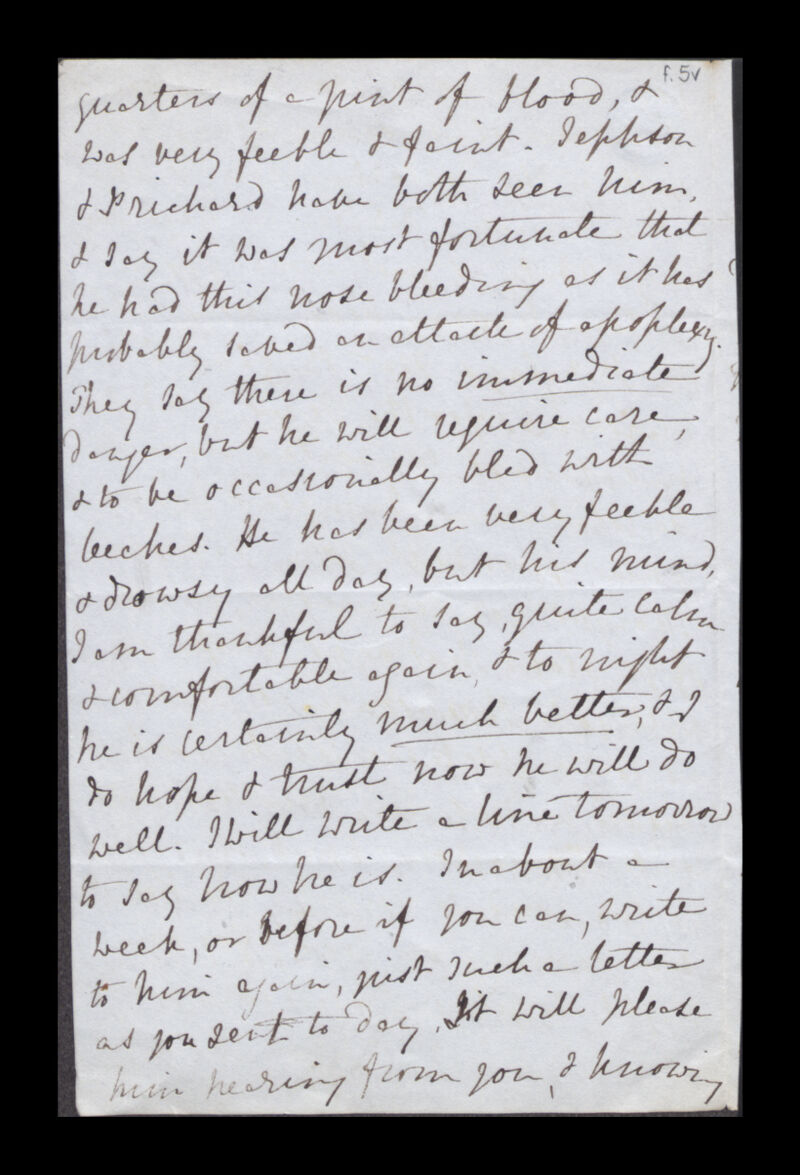 f. 5v
quarters of a pint of blood, &
was very feeble & faint. Jephson
& Prichard have both seen him,
& say it was most fortunate that
he had this nose bleeding as it has
probably saved an attack of apoplexy.
They say there is no immediate
danger, but he will require care,
& to be occasionally bled with
leeches. He has been very feeble
& drowsy all day, but his mind,
I am thankful to say, quite calm
& comfortable again, & to night
he is certainly much better, & I
do hope & trust now he will do
well. I will write a line tomorrow
to say how he is. In about a
week, or before if you can, write
to him again, just such a letter
as you sent to day. It will please
him hearing from you, & knowing